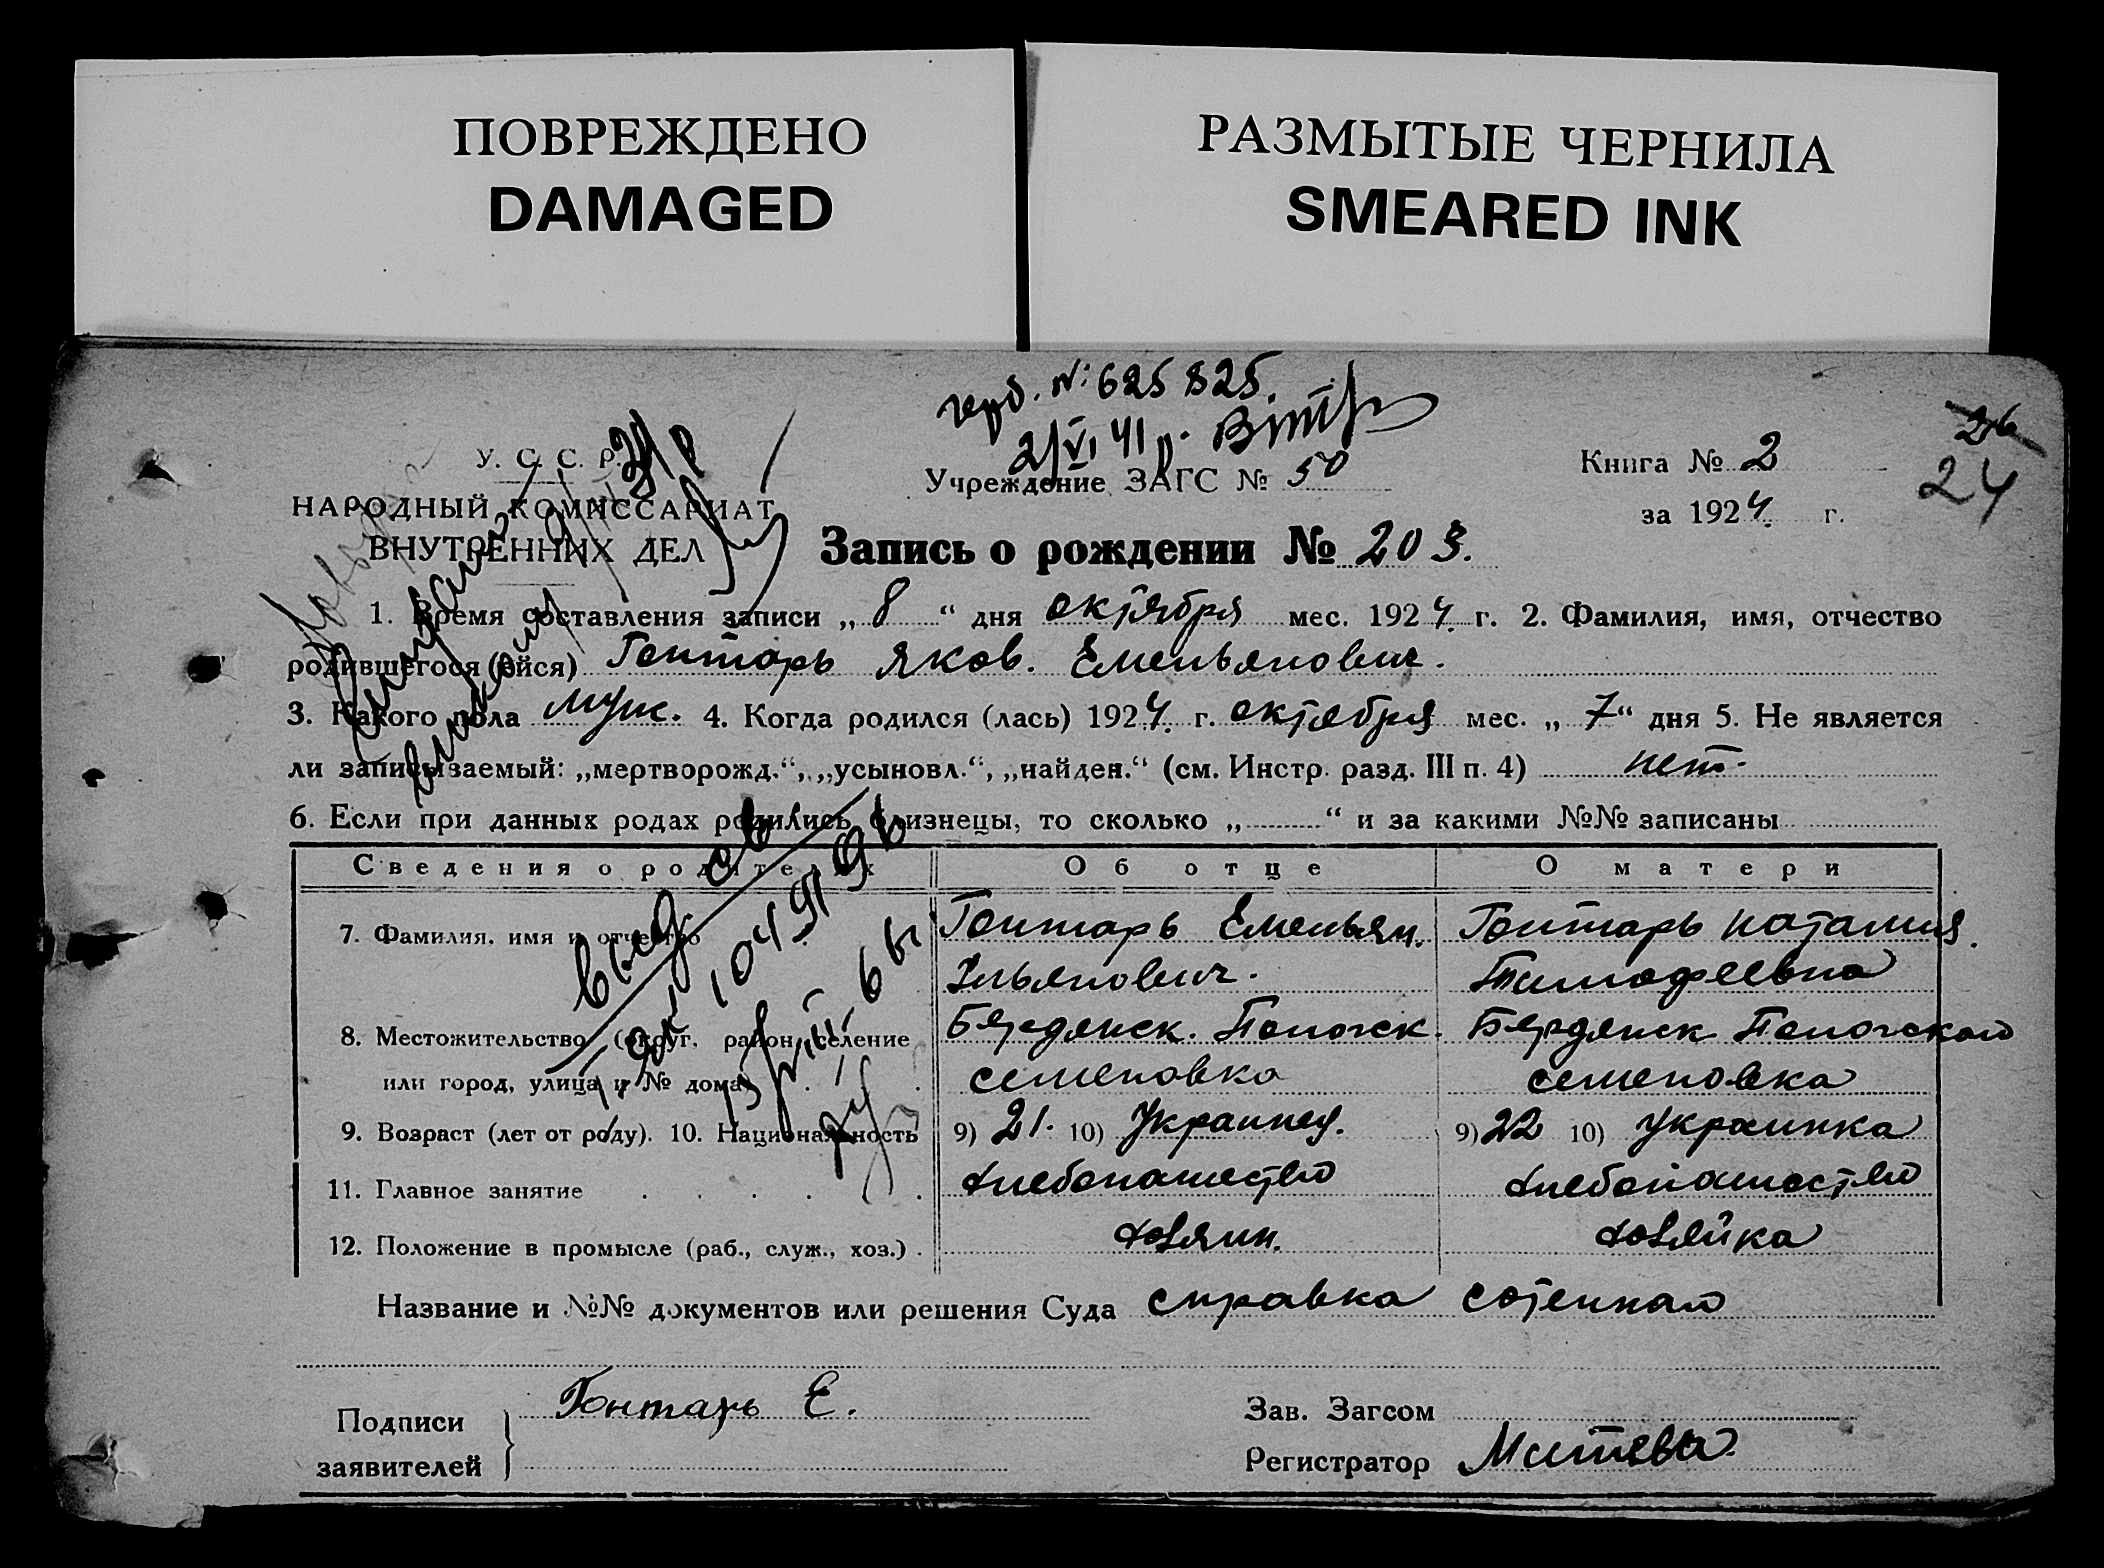 ПОВРЕЖДЕНО
DAMAGED
РАЗМЫТЫЕ ЧЕРНИЛА
SMEARED INK
№ 625825.
2/VI 41 р.
26
24
У. С. С. Р.
НАРОДНЫЙ КОМИССАРИАТ
ВНУТРЕННИХ ДЕЛ
Учреждение ЗАГС № 50
Книга № 2
за 1924 г.
Запись о рождении № 203.
1. Время составления записи „ 8 “ дня октября мес. 1924. г. 2. Фамилия, имя, отчество
родившегося (ейся) Гонтарь Яков. Емельянович.
3. Какого пола муж. 4. Когда родился (лась) 1924. г. октября мес. „ 7 “ дня 5. Не является
ли записываемый: „мертворожд.“, „усыновл.“, „найден.“ (см. Инстр. разд. III п. 4) нет.
6. Если при данных родах родились близнецы, то сколько „ “ и за какими №№ записаны
Сведения о родителях Об отце О матери
7. Фамилия, имя и отчество Гонтарь Емельян. Гонтарь Наталия.
Ильянович. Тимофеевна
8. Местожительство (округ, район, селение Бярдянск. Пологск. Бярдянск Пологского
или город, улица и № дома) семеновка семеновка
9. Возраст (лет от роду). 10. Национальность 9) 21. 10) Украинец. 9) 22 10) Украинка
11. Главное занятие хлебопашество хлебопашество
12. Положение в промысле (раб., служ., хоз.) хозяин. хозяйка
Название и №№ документов или решения Суда справка сотенного
Подписи заявителей Гонтарь Е.
Зав. Загсом
Регистратор